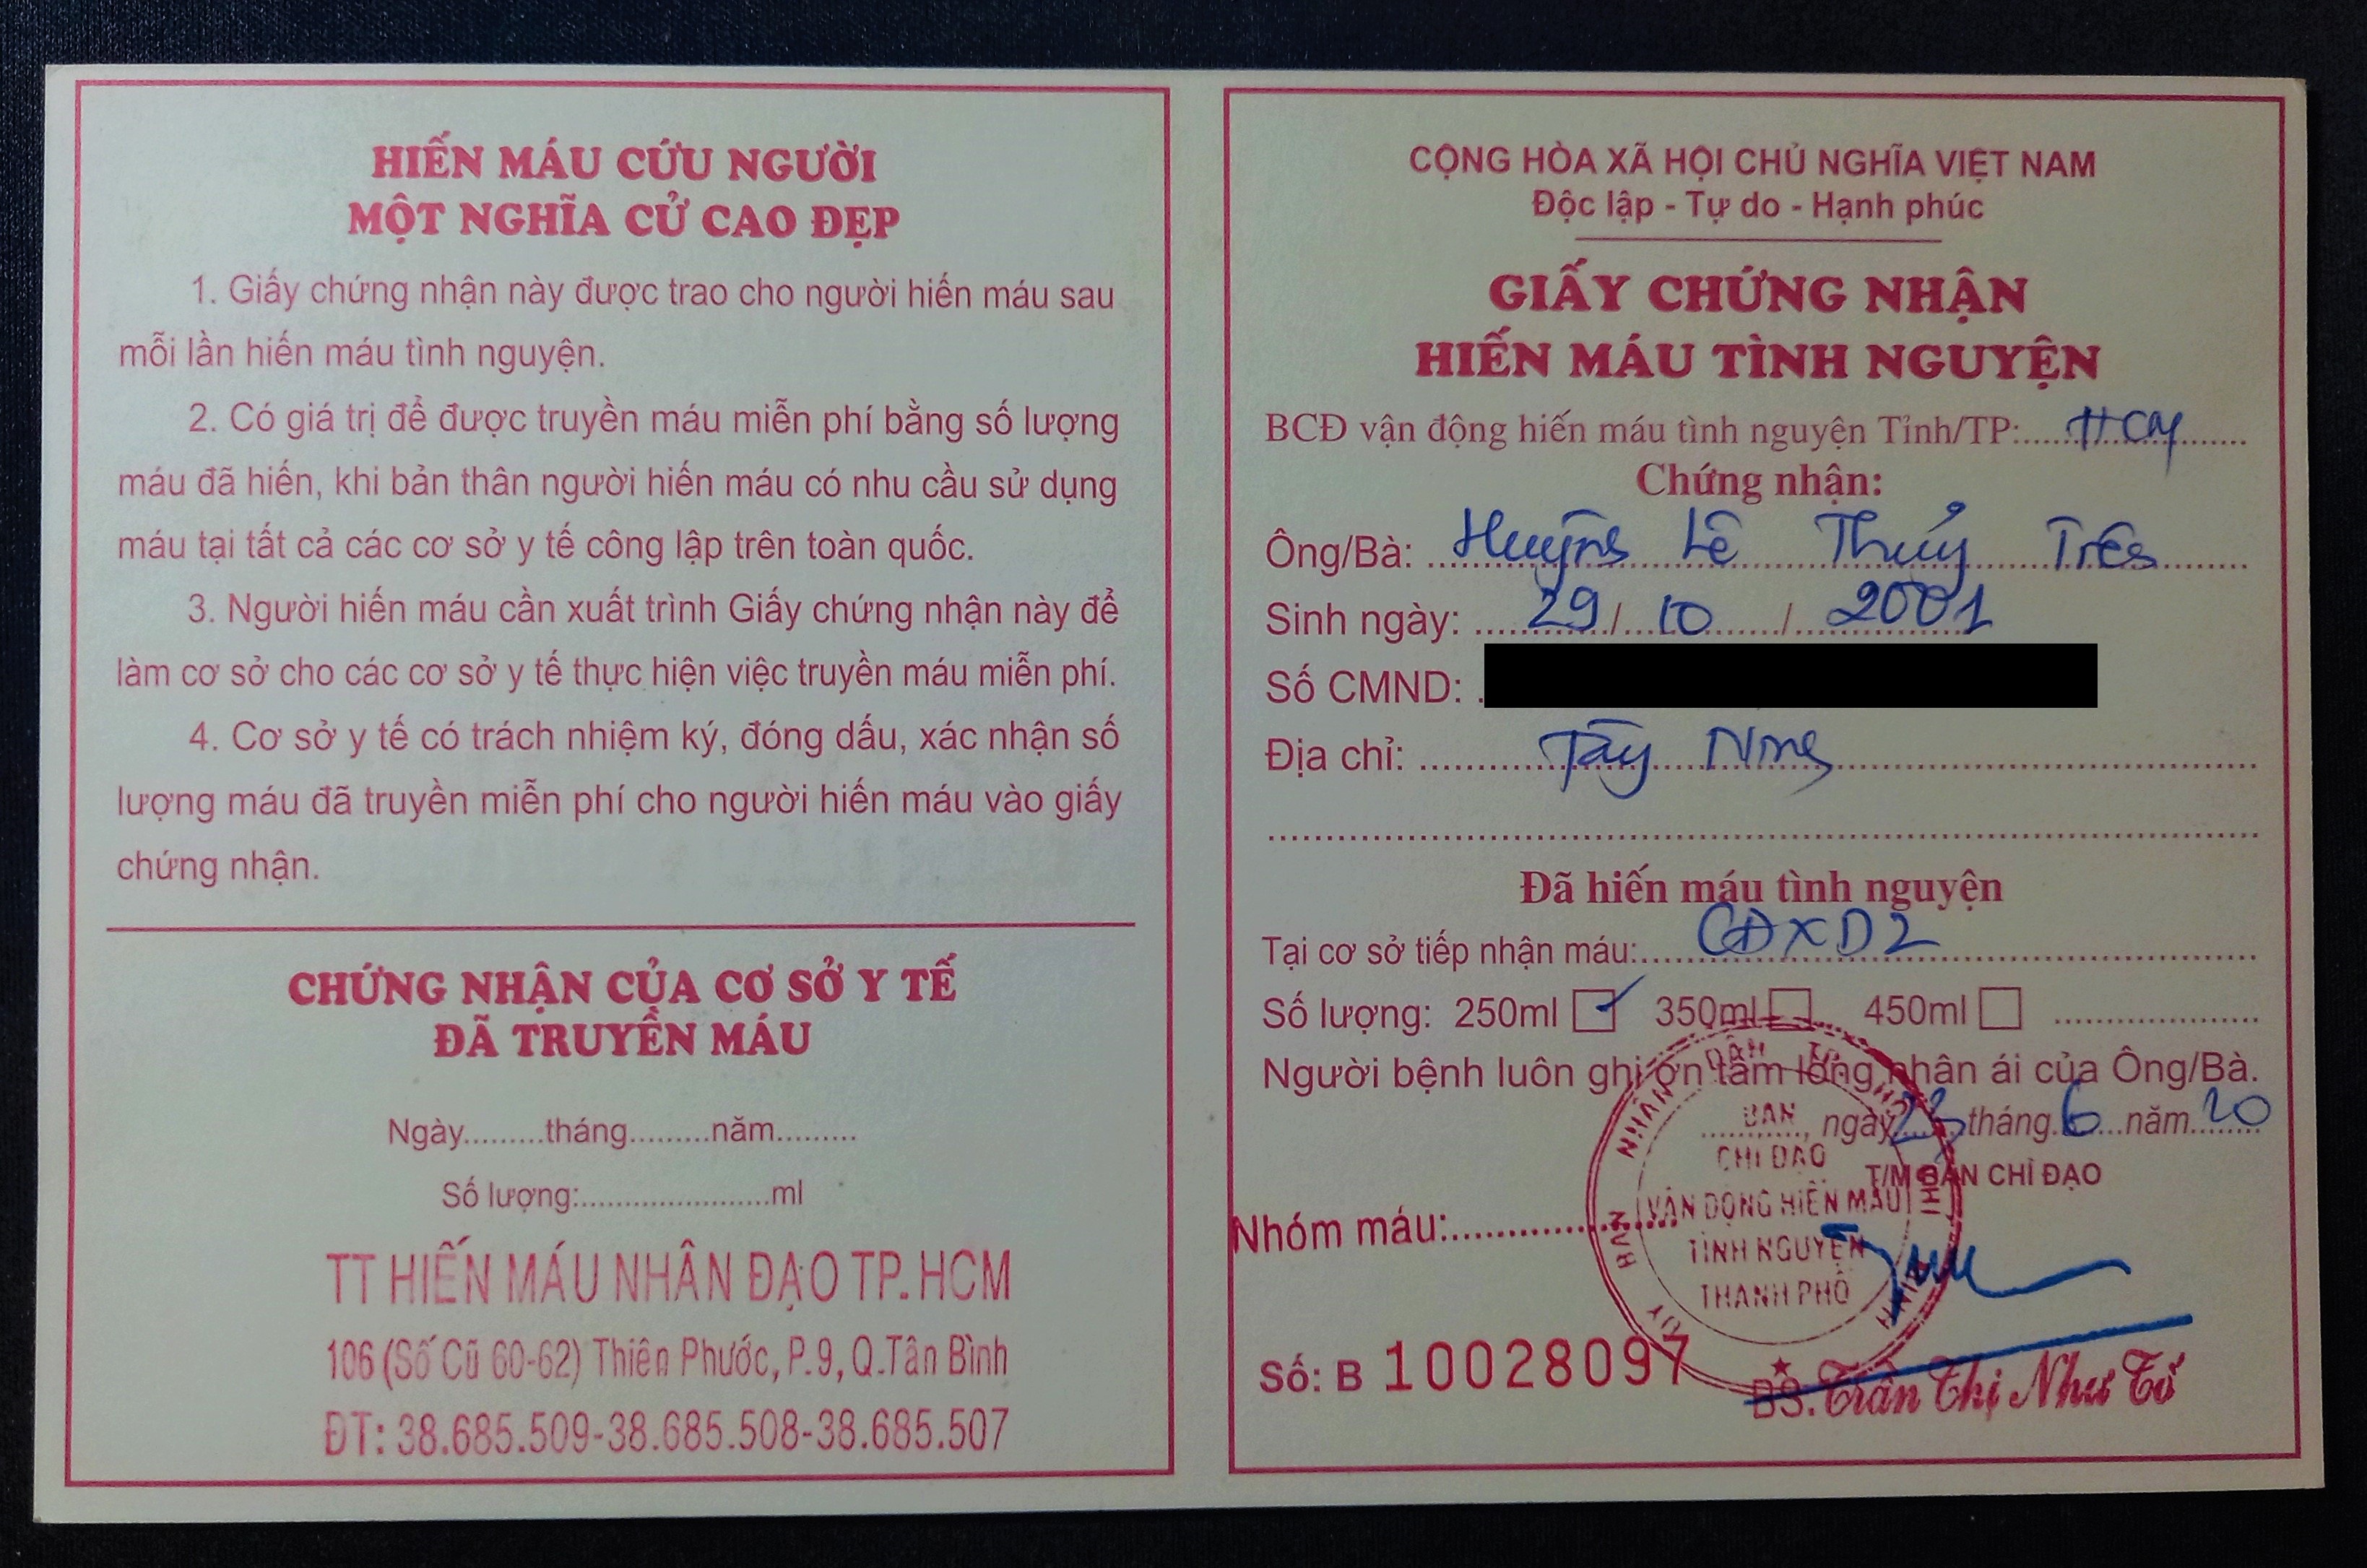 HIẾN MÁU CỨU NGƯỜI
MỘT NGHĨA CỬ CAO ĐẸP
1. Giấy chứng nhận này được trao cho người hiến máu sau
mỗi lần hiến máu tình nguyện.
2. Có giá trị để được truyền máu miễn phí bằng số lượng
máu đã hiến, khi bản thân người hiến máu có nhu cầu sử dụng
máu tại tất cả các cơ sở y tế công lập trên toàn quốc.
3. Người hiến máu cần xuất trình Giấy chứng nhận này để
làm cơ sở cho các cơ sở y tế thực hiện việc truyền máu miễn phí.
4. Cơ sở y tế có trách nhiệm ký, đóng dấu, xác nhận số
lượng máu đã truyền miễn phí cho người hiến máu vào giấy
chứng nhận.
CHỨNG NHẬN CỦA CƠ SỞ Y TẾ
ĐÃ TRUYỀN MÁU
Ngày.........tháng.........năm.........
Số lượng:.......................ml
TT HIẾN MÁU NHÂN ĐẠO TP.HCM
106 (Số Cũ 60-62) Thiên Phước, P.9, Q.Tân Bình
ĐT: 38.685.509-38.685.508-38.685.507
CỘNG HÒA XÃ HỘI CHỦ NGHĨA VIỆT NAM
Độc lập - Tự do - Hạnh phúc
GIẤY CHỨNG NHẬN
HIẾN MÁU TÌNH NGUYỆN
BCĐ vận động hiến máu tình nguyện Tỉnh/TP: HCM
Chứng nhận:
Ông/Bà: Huỳnh Lê Thủy Trên
Sinh ngày: 29 / 10 / 2001
Số CMND:
Địa chỉ: Tây Ninh
Đã hiến máu tình nguyện
Tại cơ sở tiếp nhận máu: CĐXD2
Số lượng: 250ml 350ml 450ml
Người bệnh luôn ghi ơn tấm lòng nhân ái của Ông/Bà.
ngày 23 tháng 6 năm 20
T/M BAN CHỈ ĐẠO
BAN
CHỈ ĐẠO
VẬN ĐỘNG HIẾN MÁU
TÌNH NGUYỆN
THÀNH PHỐ
Nhóm máu:
Số: B 10028097
BS. Trần Thị Như Tố